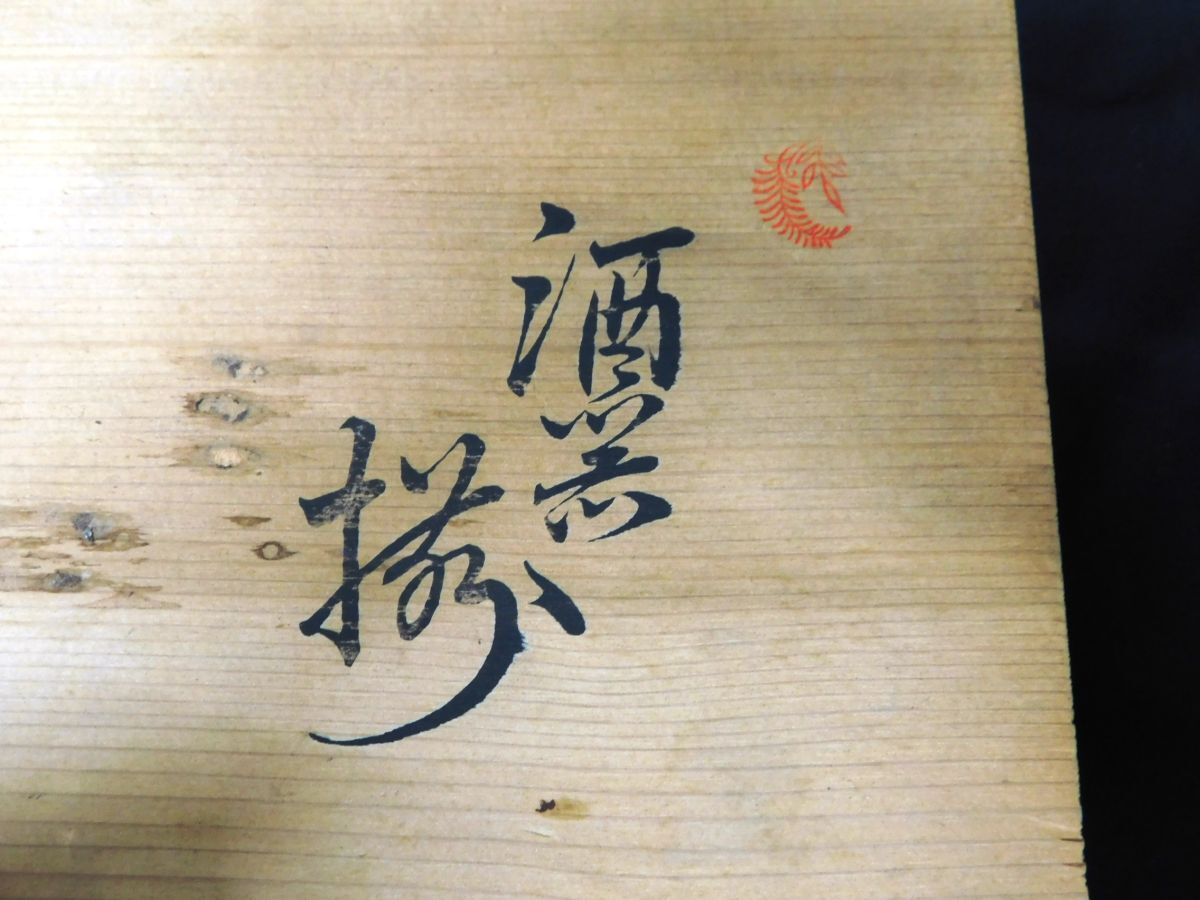 酒器
揃